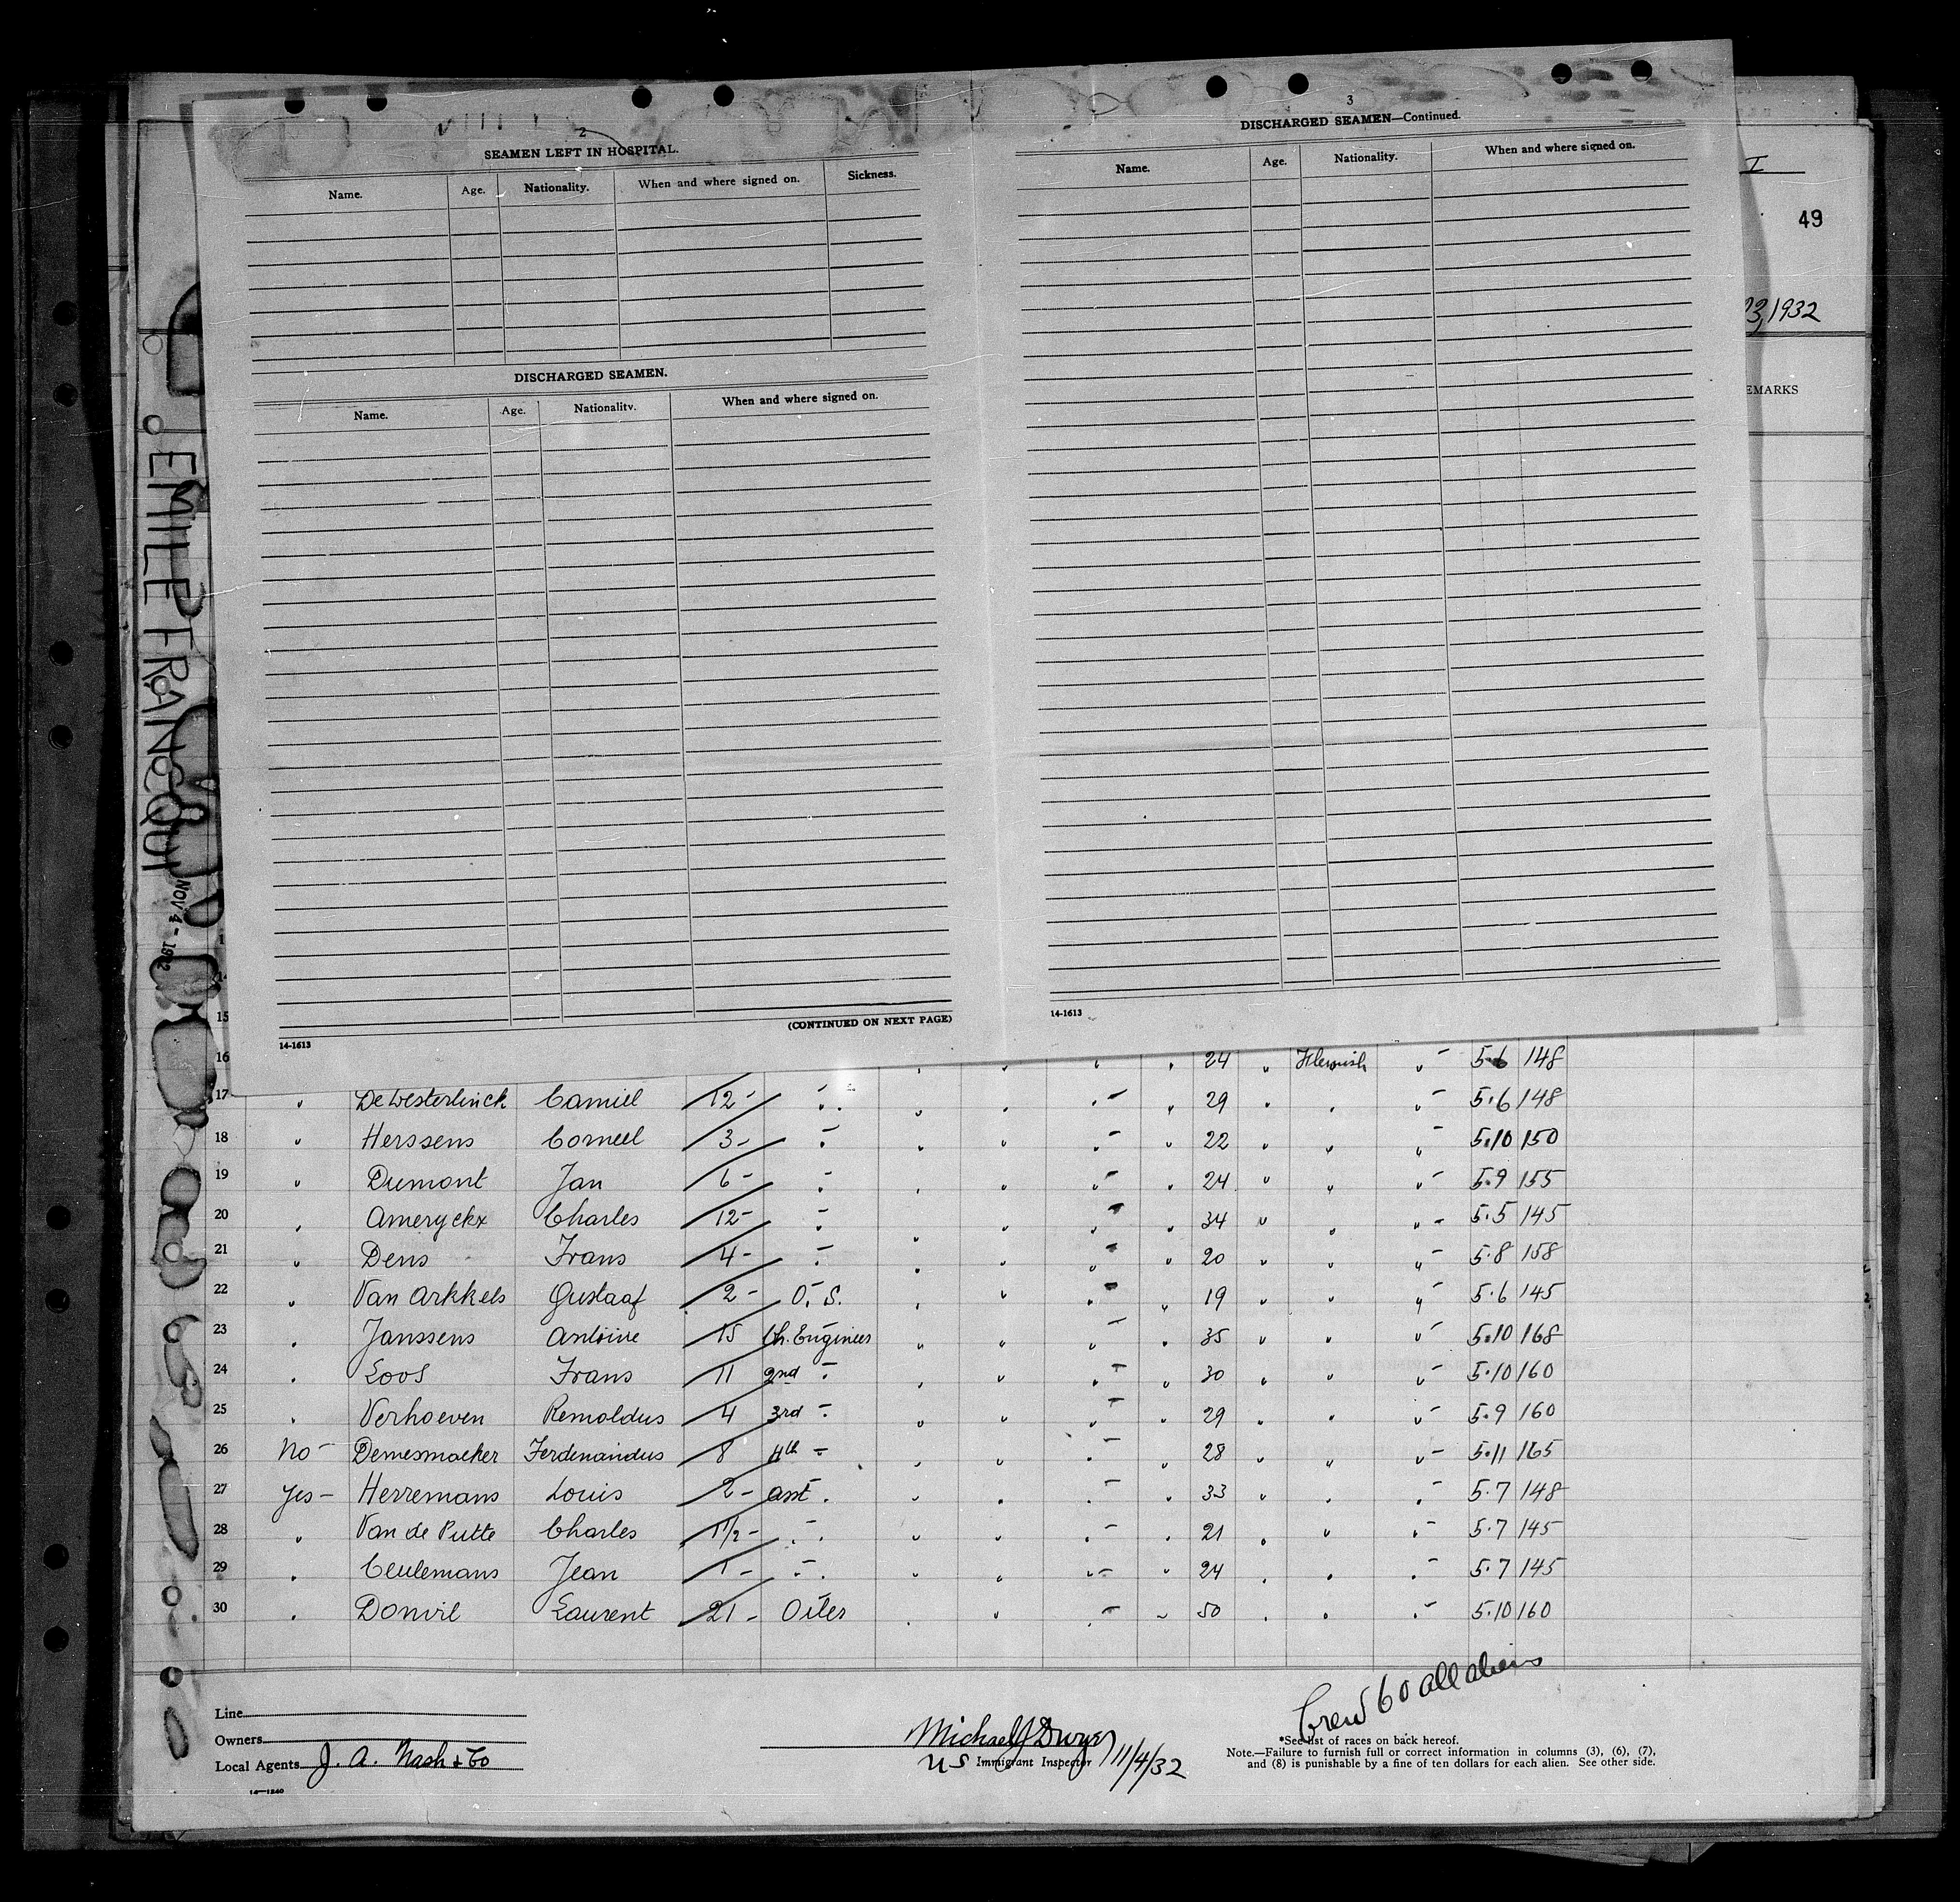 2
SEAMEN LEFT IN HOSPITAL.
Name. Age. Nationality. When and where signed on. Sickness.
DISCHARGED SEAMEN.
Name. Age. Nationality. When and where signed on.
(CONTINUED ON NEXT PAGE)
14-1613
3
DISCHARGED SEAMEN—Continued.
Name. Age. Nationality. When and where signed on.
14-1613
I
49
23, 1932
EMARKS
EMILE FRANCQUI
NOV 4 - 1932
15
16 24 " Flemish " - 5-6 148
17 " DeWesterlinck Camiel 12 - " " " " - " 29 " " " - 5.6 148
18 " Herssens Corneel 3 - " " " " - " 22 " " " - 5.10 150
19 " Dumont Jan 6 - " " " " - " 24 " " " - 5.9 155
20 " Ameryckx Charles 12 - " " " " - " 34 " " " - 5.5 145
21 " Dens Frans 4 - " " " " - " 20 " " " - 5.8 158
22 " Van Arkkels Gustaaf 2 - O.S. " " " - " 19 " " " - 5.6 145
23 " Janssens Antoine 15 Ch. Engineer " " " - " 35 " " " - 5.10 168
24 " Loos Frans 11 2nd - " " " - " 30 " " " - 5.10 160
25 " Verhoeven Remoldus 4 3rd - " " " - " 29 " " " - 5.9 160
26 No - Demesmaeker Ferdinandus 8 4th - " " " - " 28 " " " - 5.11 165
27 Yes - Herremans Louis 2 - asst. " " " - " 33 " " " - 5.7 148
28 " Van de Putte Charles 1 1/2 - " " " " - " 21 " " " - 5.7 145
29 " Ceulemans Jean 1 - " " " " - " 24 " " " - 5.7 145
30 " Donvil Laurent 21 - Oiler " " " - " 50 " " " - 5.10 160
Crew 60 all aliens
Line
Owners
Local Agents J. A. Nash & Co
14-1240
Michael J Dwyer
US Immigrant Inspector 11/4/32
*See list of races on back hereof.
Note.—Failure to furnish full or correct information in columns (3), (6), (7),
and (8) is punishable by a fine of ten dollars for each alien. See other side.